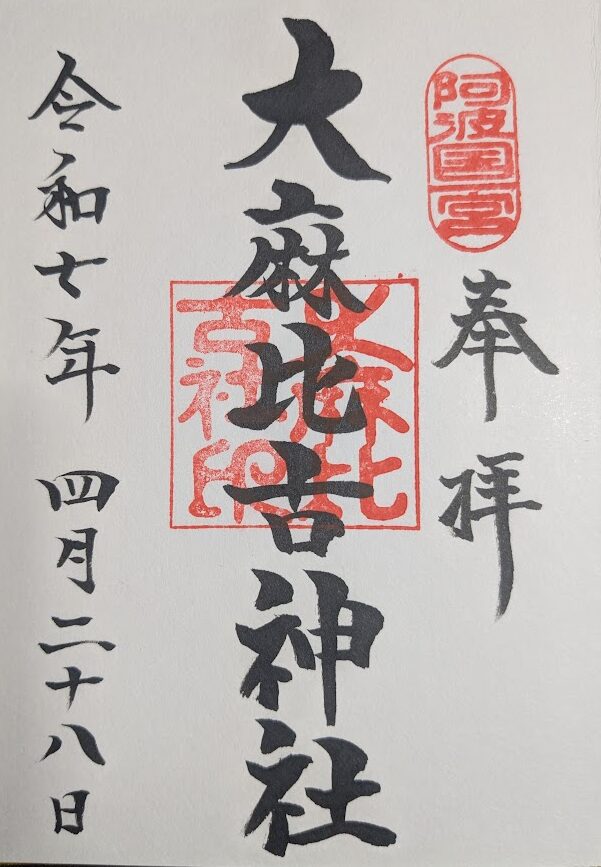 阿波国一宮
奉拝
大麻比古神社
大麻比
古社印
令和七年 四月二十八日